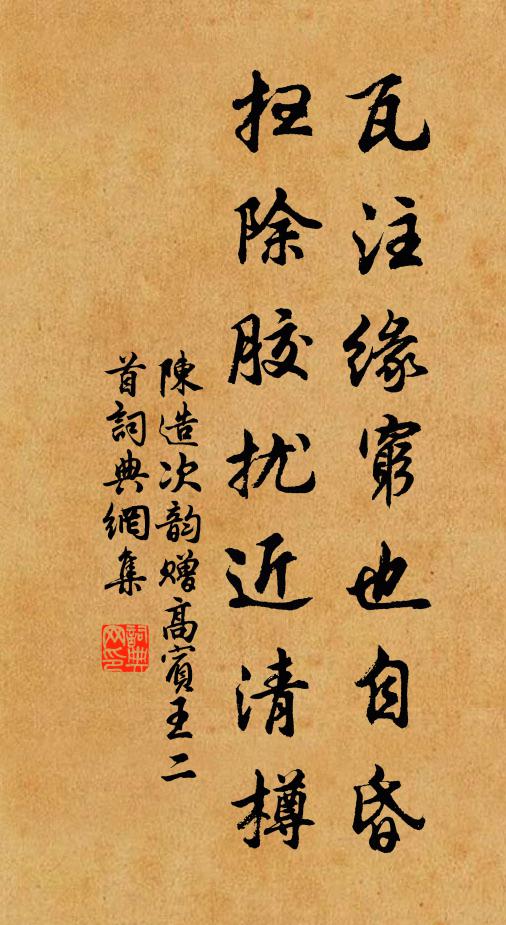 瓦注缘窮也自昏
扫除胶扰近清樽
陳造次韵赠高賓王二
首詞典網集
詞典
网印